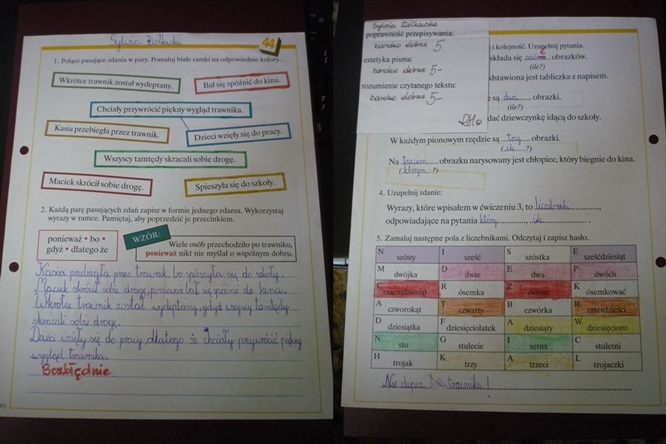 Sylwia Ziółkowska
44
1. Połącz pasujące zdania w pary. Pomaluj białe ramki na odpowiednie kolory.
Wkrótce trawnik został wydeptany.
Bał się spóźnić do kina.
Chciały przywrócić piękny wygląd trawnika.
Kasia przebiegła przez trawnik.
Dzieci wzięły się do pracy.
Wszyscy tamtędy skracali sobie drogę.
Maciek skrócił sobie drogę.
Spieszyła się do szkoły.
2. Każdą parę pasujących zdań zapisz w formie jednego zdania. Wykorzystaj
wyrazy w ramce. Pamiętaj, aby poprzedzić je przecinkiem.
ponieważ • bo •
gdyż • dlatego że
WZÓR:
Wiele osób przechodziło po trawniku,
ponieważ nikt nie myślał o wspólnym dobru.
Kasia przebiegła przez trawnik, bo spieszyła się do szkoły.
Maciek skrócił sobie drogę, ponieważ bał się spóźnić do kina.
Wkrótce trawnik został wydeptany, gdyż wszyscy tamtędy
skracali sobie drogę.
Dzieci wzięły się do pracy dlatego że chciały przywrócić piękny
wygląd trawnika.
Bezbłędnie
Sylwia Ziółkowska
poprawność przepisywania:
bardzo dobrze 5
estetyka pisma:
bardzo dobrze 5-
rozumienie czytanego tekstu:
bardzo dobrze 5-
i kolejność. Uzupełnij pytania.
składa się obrazków.
(ile?)
dstawiona jest tabliczka z napisem.
e są dwa obrazki.
(ile?)
dać dziewczynkę idącą do szkoły.
W każdym pionowym rzędzie są trzy obrazki.
(ile ?)
Na trzecim obrazku narysowany jest chłopiec, który biegnie do kina.
(którym ?)
4. Uzupełnij zdanie:
Wyrazy, które wpisałem w ćwiczeniu 3, to liczebniki,
odpowiadające na pytania który, ile.
5. Zamaluj następne pola z liczebnikami. Odczytaj i zapisz hasło.
N szósty I sześć S szóstka E sześćdziesiąt
M dwójka D dwie E dwa P dwóch
R ósemka Z K ósemkować
A czworokąt T czwarty B czwórka R czterdzieści
D dziesiątka F dziesięciolatek A dziesiąty W dziesięcioro
N sto G stulecie I setna C stuletni
H trojak K trzy A trzeci L trojaczki
Nie depcz trawnika!